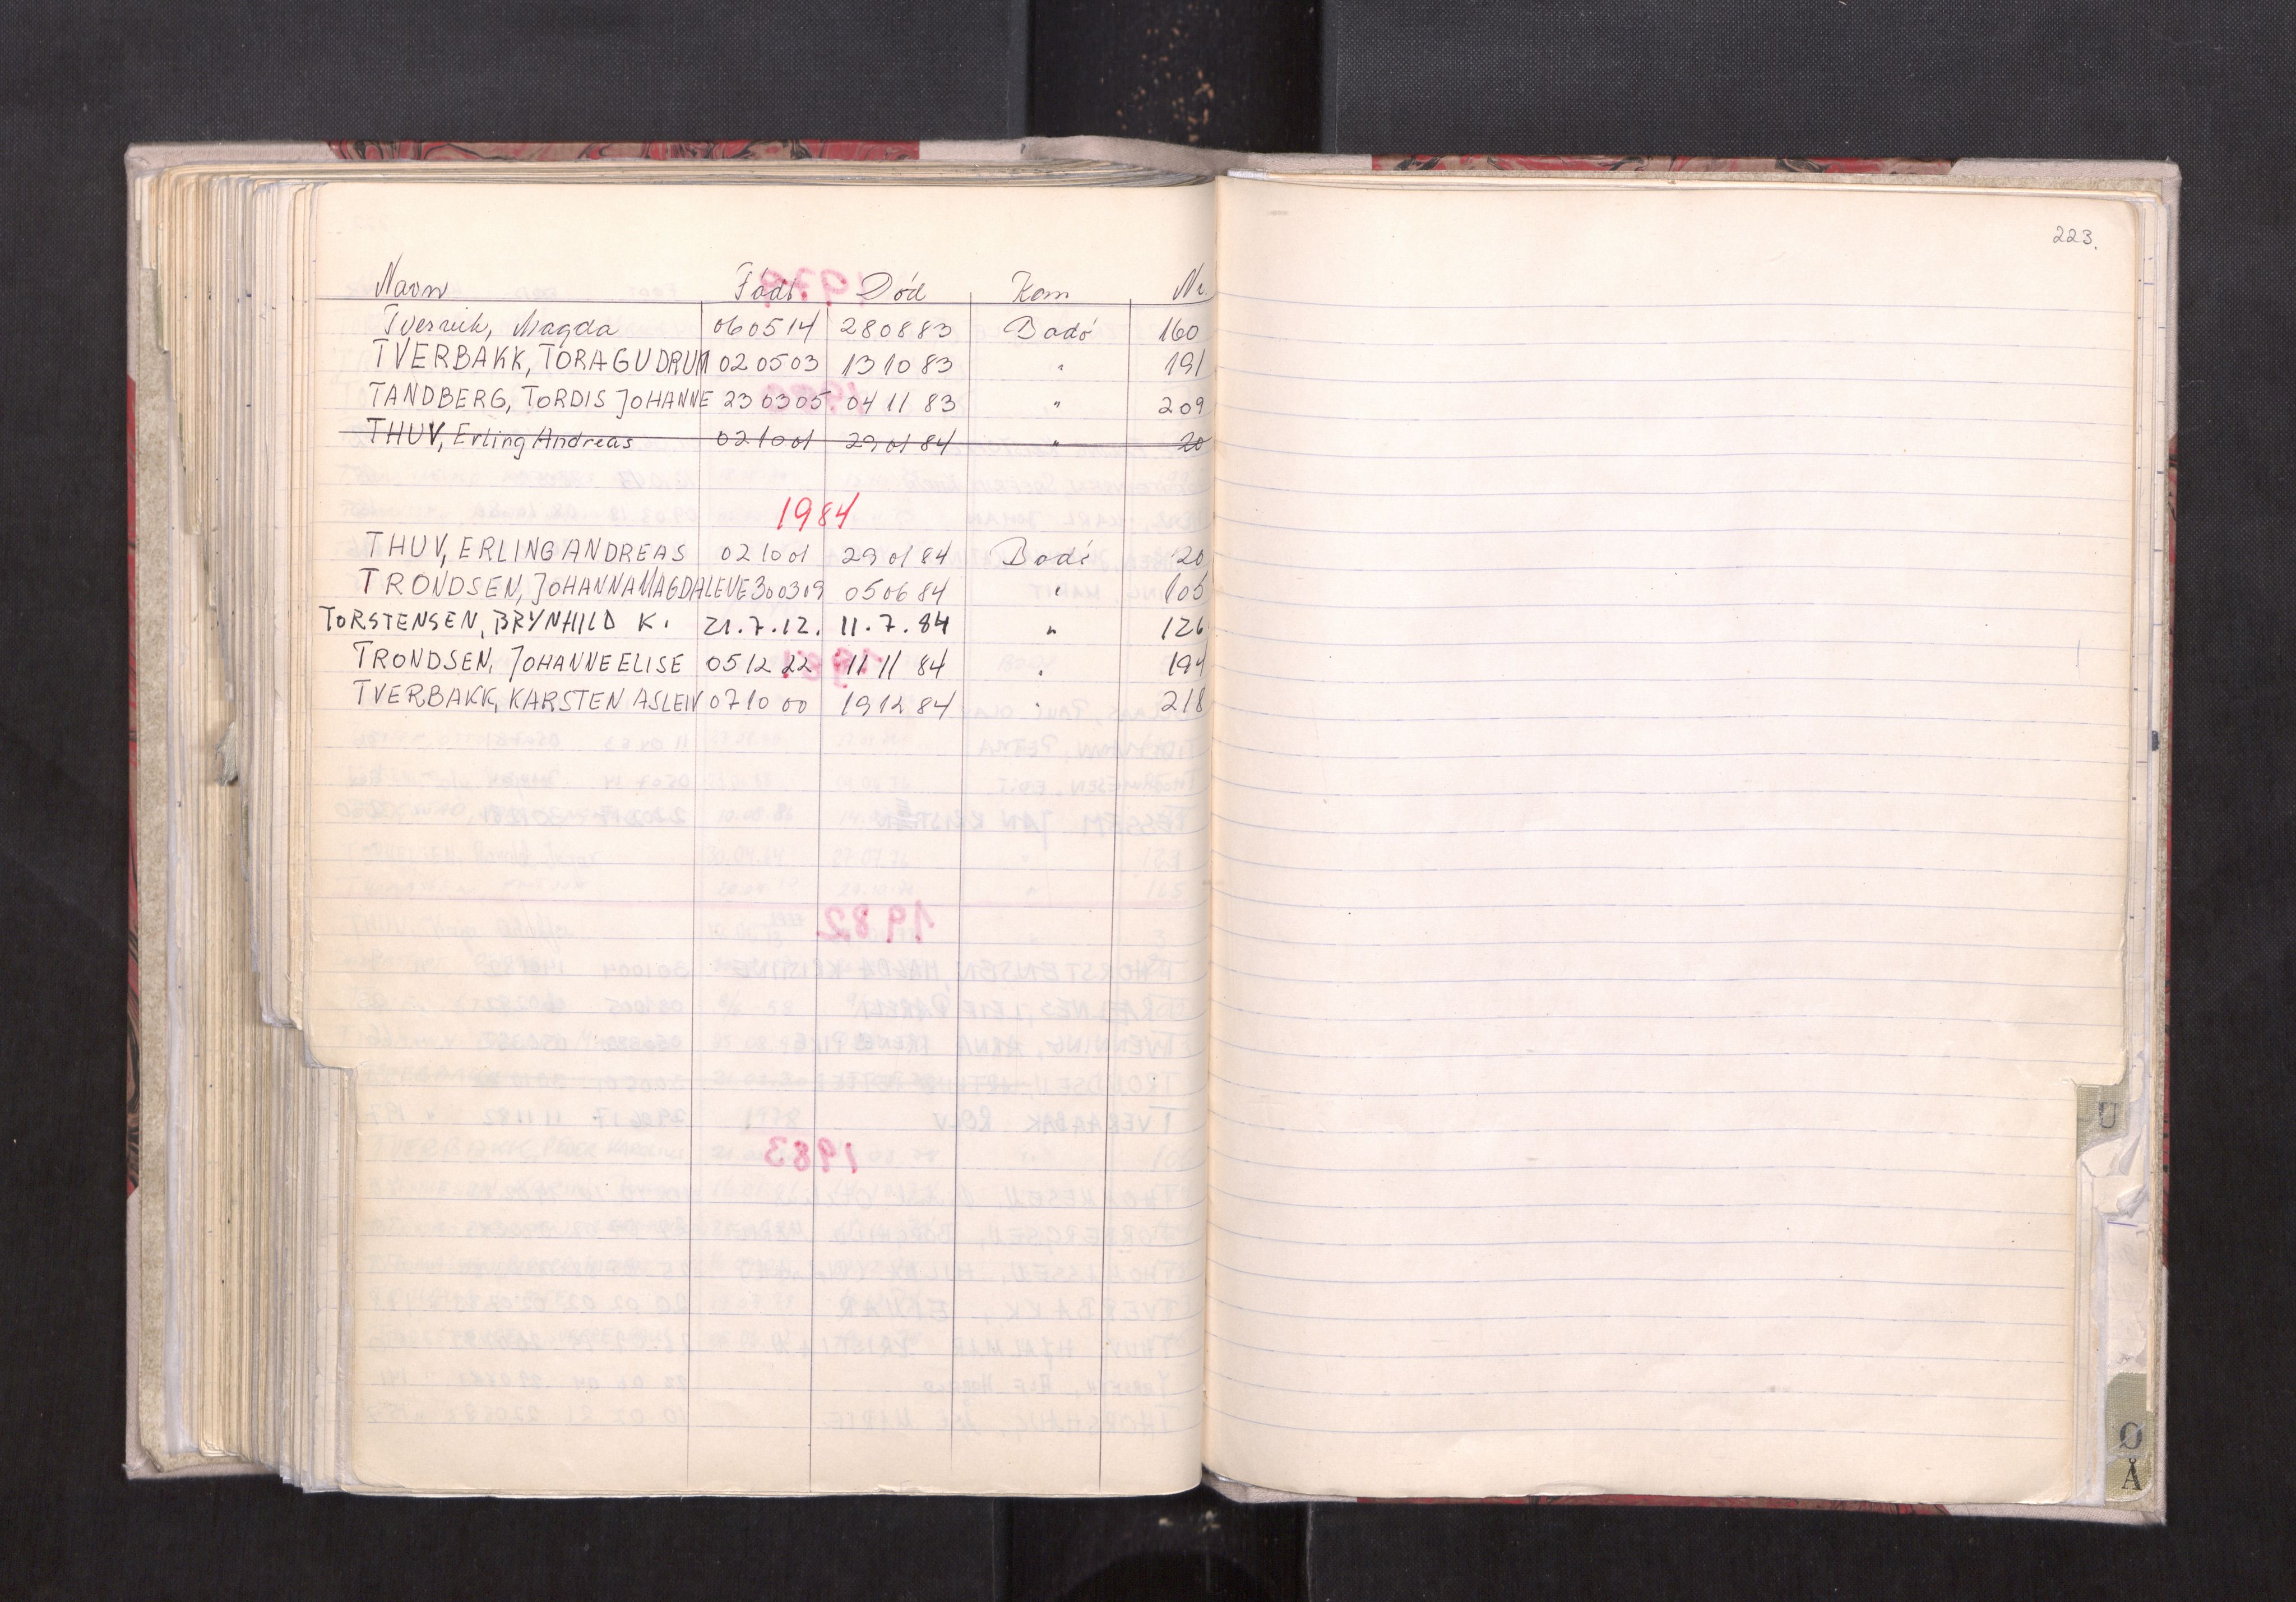 223.
Navn Født Død Kom Nr.
Tverrvik, Magda 060514 280883 Bodø 160
TVERBAKK, TORA GUDRUN 020503 131083 " 191
TANDBERG, TORDIS JOHANNE 230305 041183 " 209
THUV, Erling Andreas 021001 290184 " 20
1984
THUV, ERLING ANDREAS 021001 290184 Bodø 20
TRONDSEN, JOHANNA MAGDALENE 300309 050684 " 105
TORSTENSEN, BRYNHILD K. 21.7.12. 11.7.84 " 126
TRONDSEN, JOHANNE ELISE 051222 111184 " 194
TVERBAKK, KARSTEN ASLEIV 071000 191284 " 218
U
Ø
Å